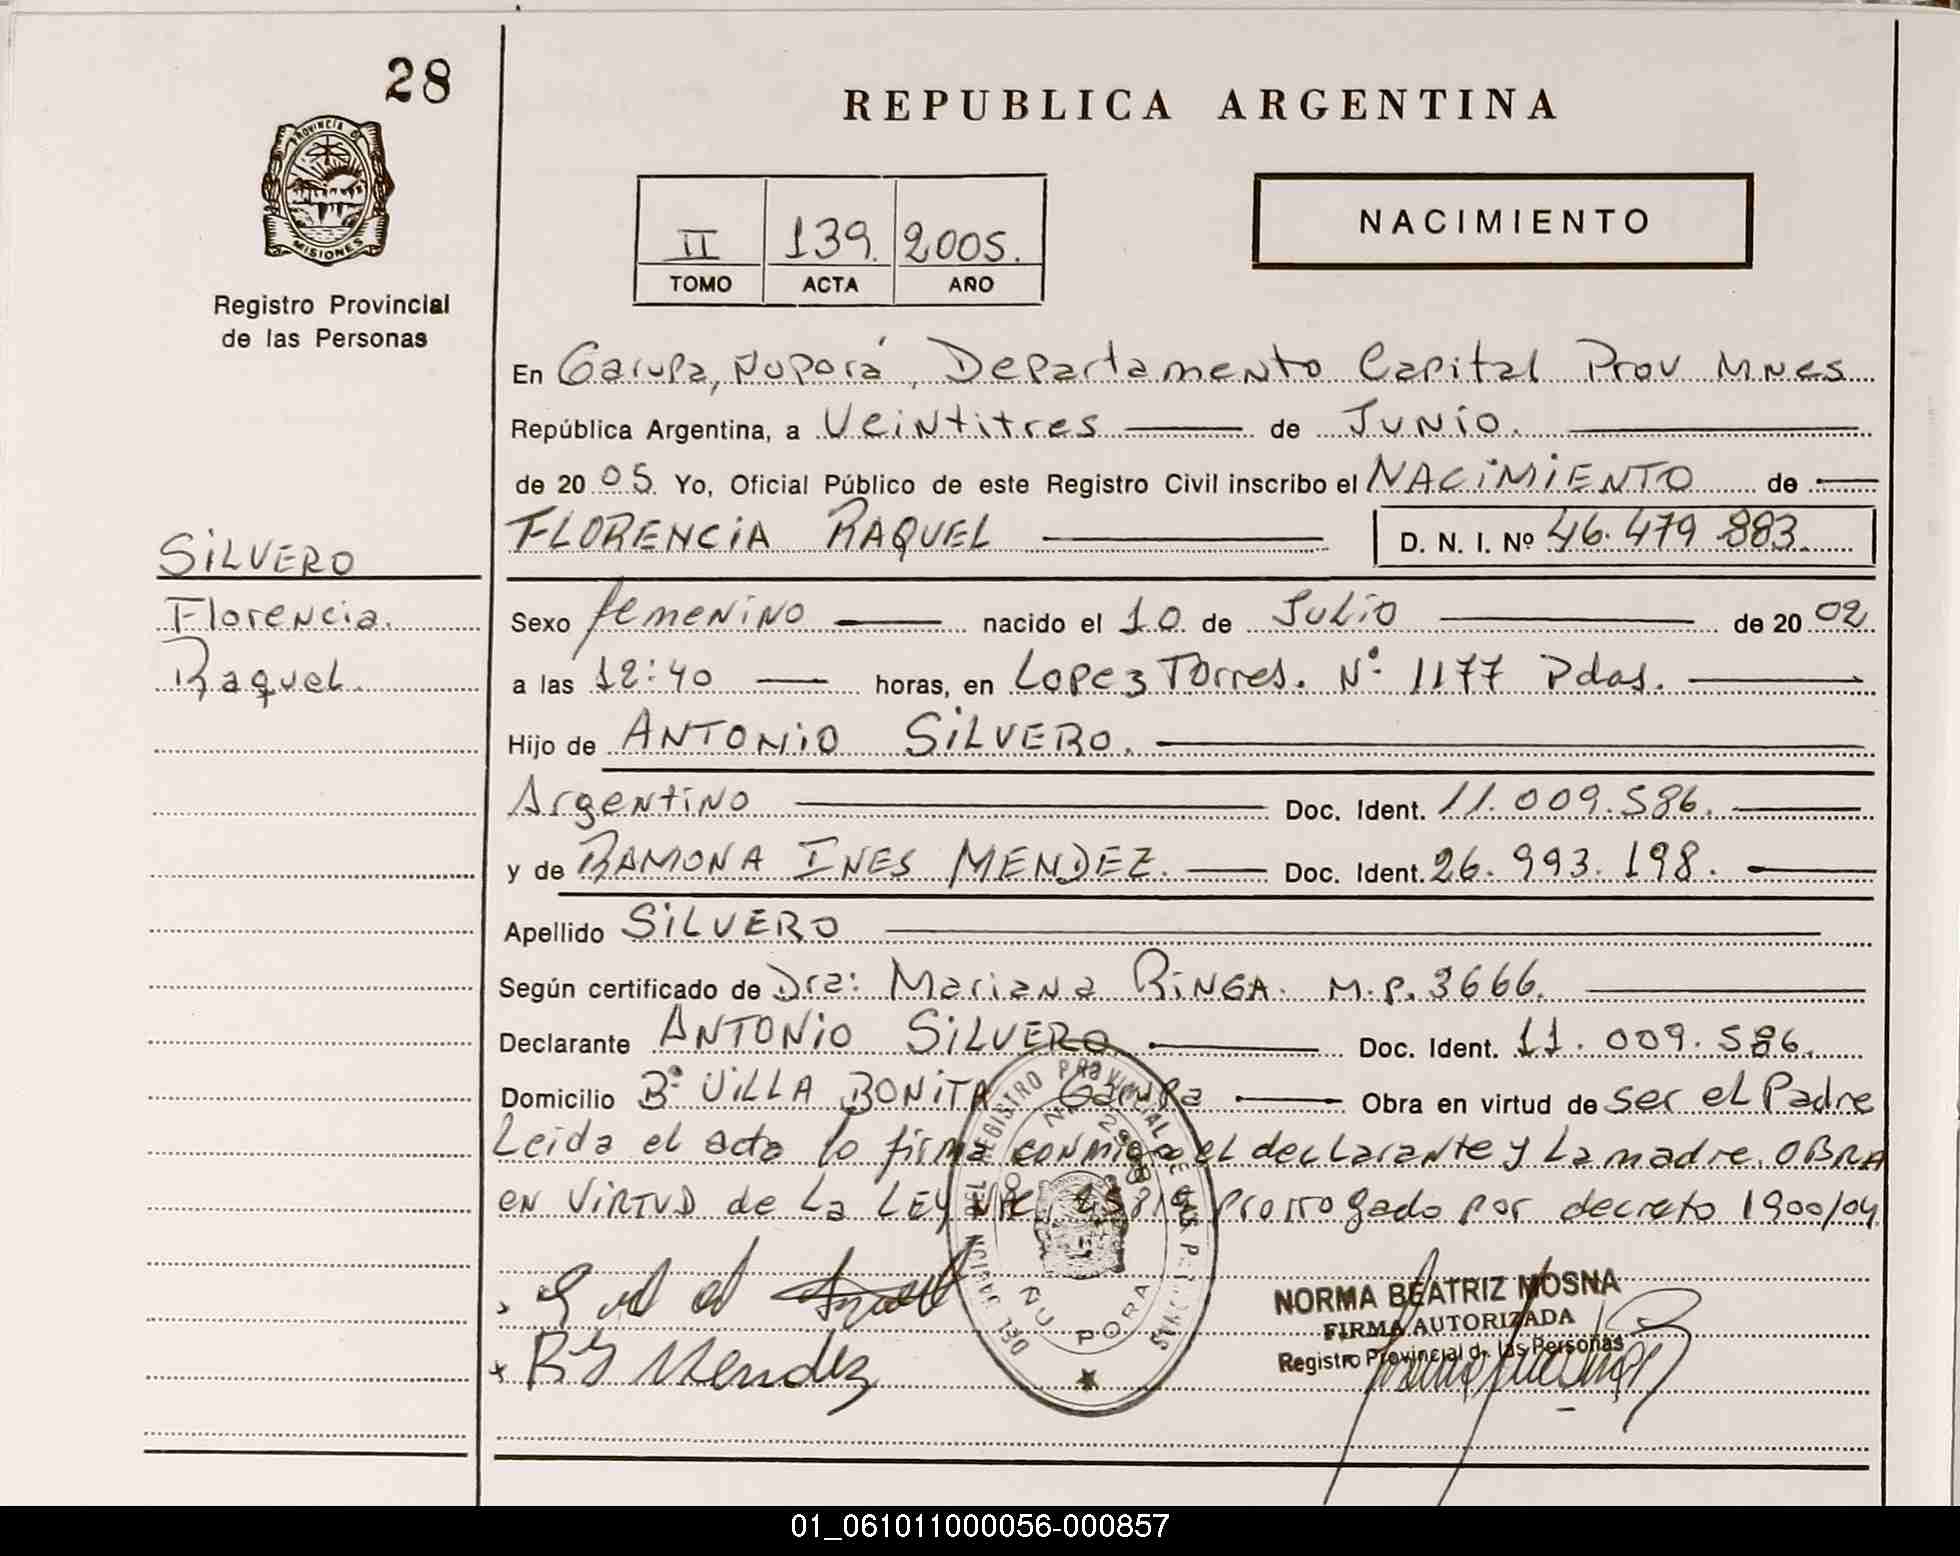 28
REPUBLICA ARGENTINA
PROVINCIA DE
MISIONES
Registro Provincial
de las Personas
II 139. 2005.
TOMO ACTA AÑO
NACIMIENTO
En Garupa, Ñuporá, Departamento Capital Prov Mnes
República Argentina, a Veintitres de Junio.
de 20 05. Yo, Oficial Público de este Registro Civil inscribo el NACIMIENTO de
FLORENCIA RAQUEL D. N. I. Nº 46.479 883.
SILVERO
Florencia.
Raquel.
Sexo femenino nacido el 10 de Julio de 20 02
a las 12:40 horas, en Lopez Torres. Nº 1177 Pdas.
Hijo de ANTONIO SILVERO.
Argentino Doc. Ident. 11.009.586.
y de RAMONA INES MENDEZ. Doc. Ident. 26.993.198.
Apellido SILVERO
Según certificado de Dra: Mariana RINGA. M.P. 3666.
Declarante ANTONIO SILVERO Doc. Ident. 11.009.586.
Domicilio Bº VILLA BONITA Garupa Obra en virtud de ser el Padre
Leida el acta lo firma conmigo el declarante y la madre. OBRA
en VIRTUD de La LEY prorrogado por decreto 1900/04
ÑU PORA
NORMA BEATRIZ MOSNA
FIRMA AUTORIZADA
Registro Provincial de las Personas
Mendez
01_061011000056-000857